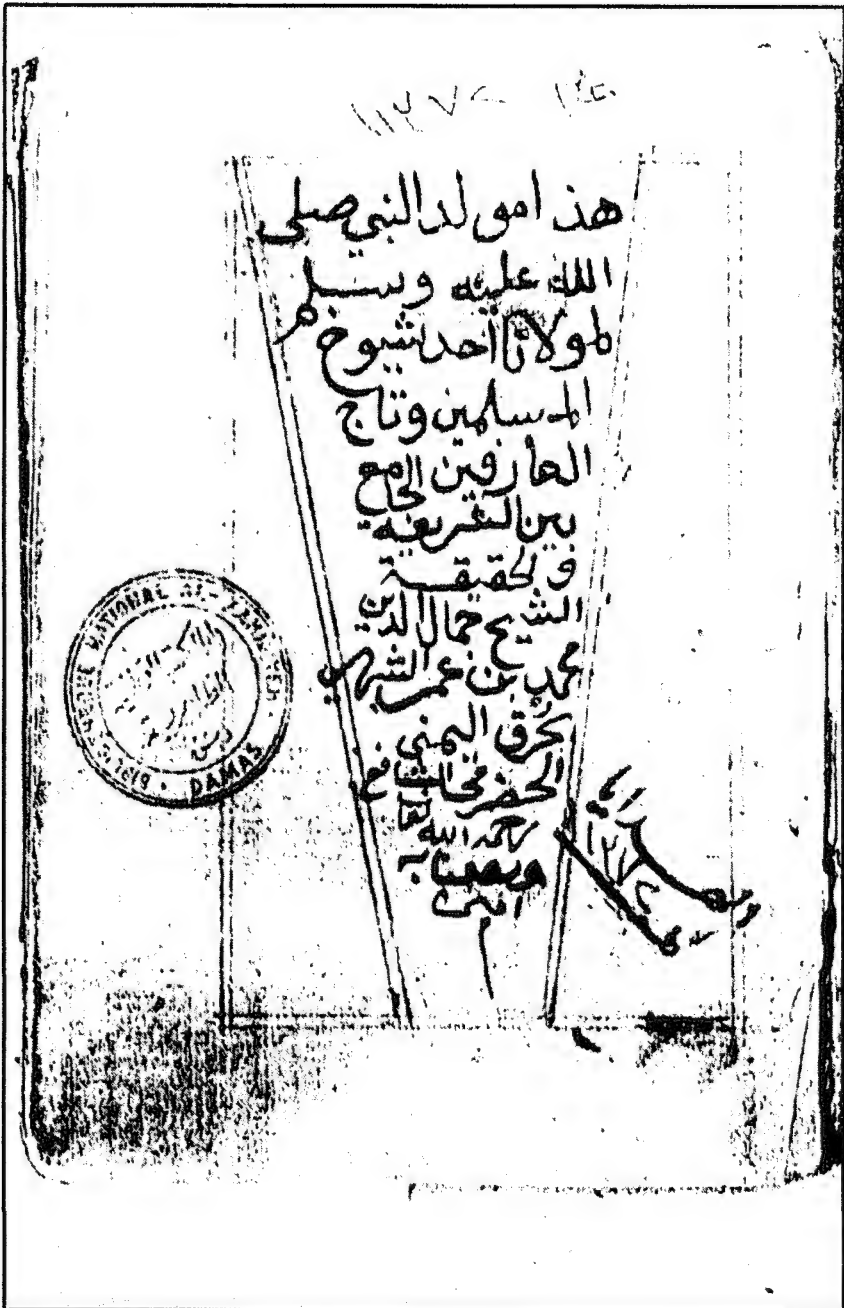 ١١٣٧٢
هذا مولد النبي صلى
الله عليه وسلم
لمولانا أحد شيوخ
المسلمين وتاج
العارفين الجامع
بين الشريعة
ولحقيقة
الشيخ جمال الدين
محمد بن عمر الشهير
بحرق اليمني
الحضرمي الشافعي
رحمه الله تعالى
ونفعنا به
امين
BIBLIOTHEQUE NATIONAL AL-ZAHIRIYEH · DAMAS ·
دمشق